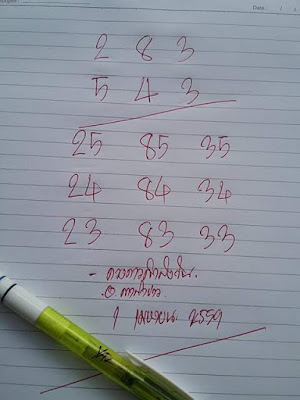 Date
2 8 3
5 4 3
25 85 35
24 84 34
23 83 33
1 เมษายน 2559